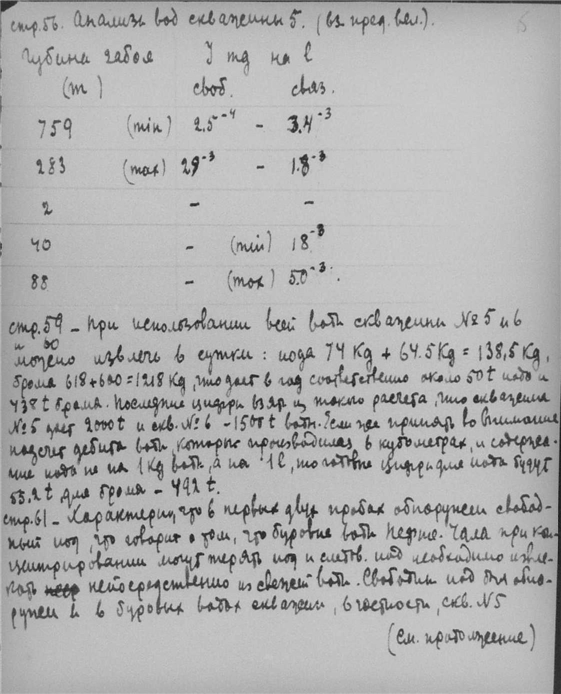 стр. 56. Анализы вод скважины 5. (вз. пред. вел.).
5
Глубина забоя J mg на l
(m) своб. связ.
759 (min) 2.5⁻⁴ – 3.4⁻³
283 (max) 29⁻³ – 1.8⁻³
2 – –
40 – (min) 18⁻³
88 – (max) 50⁻³.
стр. 59 – При использовании всей воды скважин №№ 5 и 6
и 60 можно извлечь в сутки: иода 74 Kg + 64.5 Kg = 138,5 Kg,
брома 618+600=1218 Kg, что дает в год соответственно около 50 t иода и
438 t брома. Последние цифры взяты из такого расчета, что скважина
№5 дает 2000 t и скв. №6 – 1500 t воды. Если же принять во внимание
подсчет дебита воды, которые производилась в кубометрах, и содержа-
ние иода не на 1 Kg воды, а на 1 l, то годовые цифры для иода будут
53.2 t для брома – 492 t.
стр. 61 – Характерно, что в первых двух пробах обнаружен свобод-
ный иод, что говорит о том, что буровые воды Нефте-Чала при кон-
центрировании могут терять иод и следов. иод необходимо извле-
кать непосредственно из свежей воды. Свободный иод был обна-
ружен и в буровых водах скважин, в частности, скв. №5
(См. продолжение)